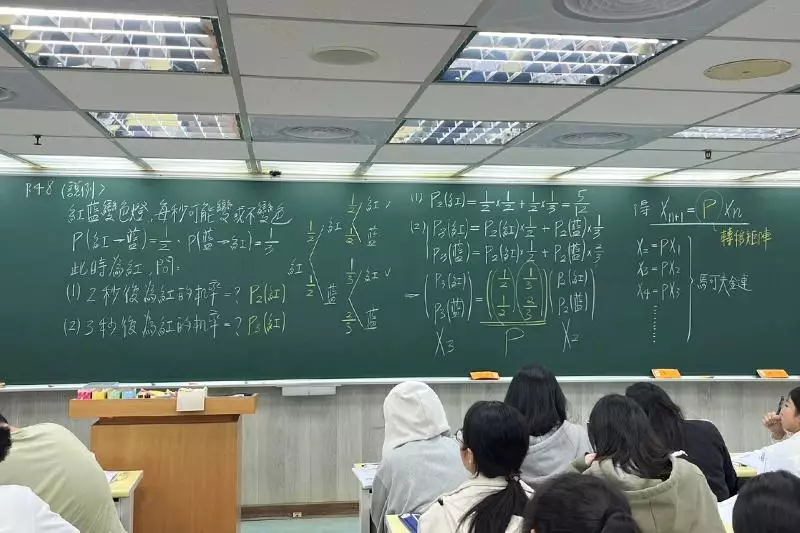 P.48 (說例)
紅藍變色燈,每秒可能變或不變色
P(紅→藍)=1/2,P(藍→紅)=1/3
此時為紅,問:
(1) 2秒後為紅的机率=? P₂(紅)
(2) 3秒後為紅的机率=? P₃(紅)
1/2 紅 ✓
1/2 紅
1/2 藍
紅
1/3 紅 ✓
1/2 藍
2/3 藍
(1) P₂(紅)=1/2×1/2+1/2×1/3=5/12
(2) P₃(紅)=P₂(紅)×1/2+P₂(藍)×1/3
P₃(藍)=P₂(紅)×1/2+P₂(藍)×2/3
(P₃(紅) P₃(藍))=(1/2 1/3 1/2 2/3)(P₂(紅) P₂(藍))
X₃ P X₂
得 Xₙ₊₁=PXₙ
轉移矩陣
X₂=PX₁
X₃=PX₂
X₄=PX₃
馬可夫鏈